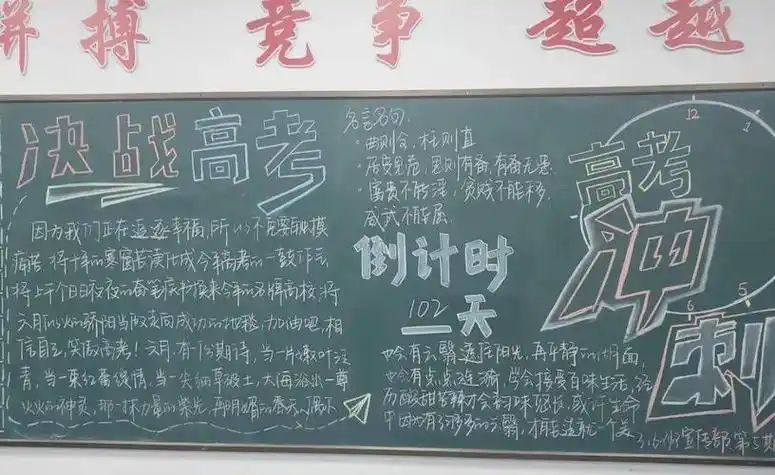 拼 搏 竞 争 超 越
决战高考
因为我们正在追逐幸福，所以不
痛苦 将十年的寒窗苦读化成今年高考的一鼓作气
将上千个日日夜夜的奋笔疾书换来今年的名牌高校，将
六月的火的骄阳当成走向成功的地毯，加油吧，相
信自己，笑傲高考！六月，有一份期待，当一片嫩叶泛
青，当一朵红蕾绽情，当一尖细草破土，大海浴出一尊
火火的神灵，那一抹力量的荣光
名言名句：
·曲则全，枉则直
·居安思危，思则有备，有备无患
·富贵不能淫，贫贱不能移，
威武不能屈
倒计时
102天
也会有云翳遮住阳光，再平静的湖面，
也会有点点涟漪，学会接受百味生活，
为酸甜苦辣才会韵味延长，或许生命
中因为有许多的云翳，才能造就一个美
12
1
高考
冲
刺
6
5
宣传部第5期